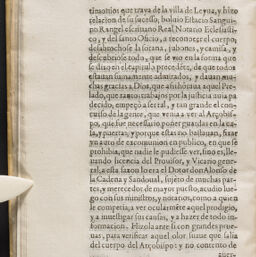 timonios que traya de la villa de Leyua, y hizo
relacion de su sucesso, boluio Estacio Sangui-
no Rangel escriuano Real Notario Eclesiasti-
co, y del santo Oficio, a reconocer el cuerpo,
desabrochose la sotana, jubones, y camisa, y
descubriose todo, que se vio en la forma que
se dixo en el capitulo precedéte, de que todos
estauan sumamente admirados, y dauan mu-
chas gracias a Dios, que assi honraua aquel Pre-
lado, que tantos trabajos por la justicia auia pa
decido, empeçò a ser tal, y tan grande el con-
curso de la gente, que venia a ver al Arçobis-
po, que fue necessario poner guardas en la ca-
la, y puertas, y porque estas no bastauan, fixar
vn auto de excomunion en publico, en que se
prohibia, que nadie le pudiesse ver, sino es, lle-
uando licencia del Prouisor, y Vicario gene-
ral, a esta sazon lo era el Dotor don Alonso de
la Cadena y Sandoual, sujeto de muchas par-
tes, y merecedor de mayor puesto, acudio lue-
go con sus ministros, y notarios, como a quien
le competia, a ver ocularmēte aquel prodigio,
y a inuestigar sus causas, y a hazer de todo in-
formacion. Hizolas ante si con grandes prue-
uas, para verificar aquel olor suaue que salia
del cuerpo del Arçobispo: y no contento de
auer-